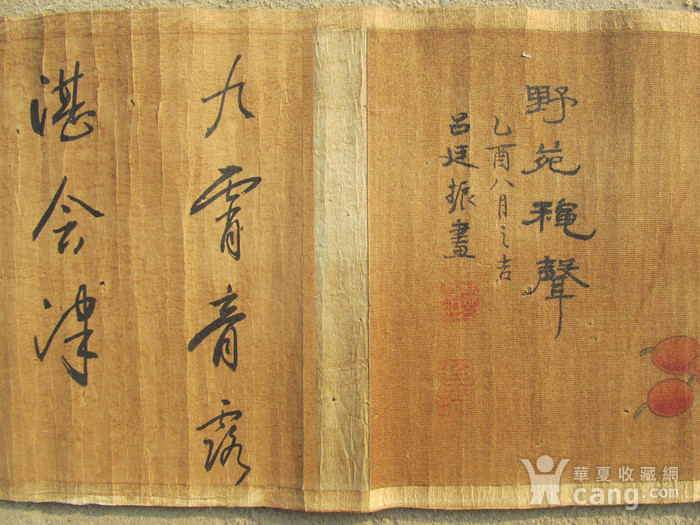 野苑穐聲
乙酉八月之吉
呂廷振畫
九霄膏露
湛金津
華夏收藏網
cang.com